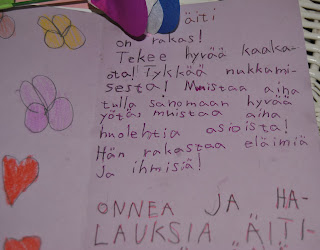 äiti
on rakas!
Tekee hyvää kaaka-
ota! Tykkää nukkumi-
sesta! Muistaa aina
tulla sanomaan hyvää
yötä, muistaa aina
huolehtia asioista!
Hän rakastaa eläimiä
ja ihmisiä!
ONNEA JA HA-
LAUKSIA ÄITI-